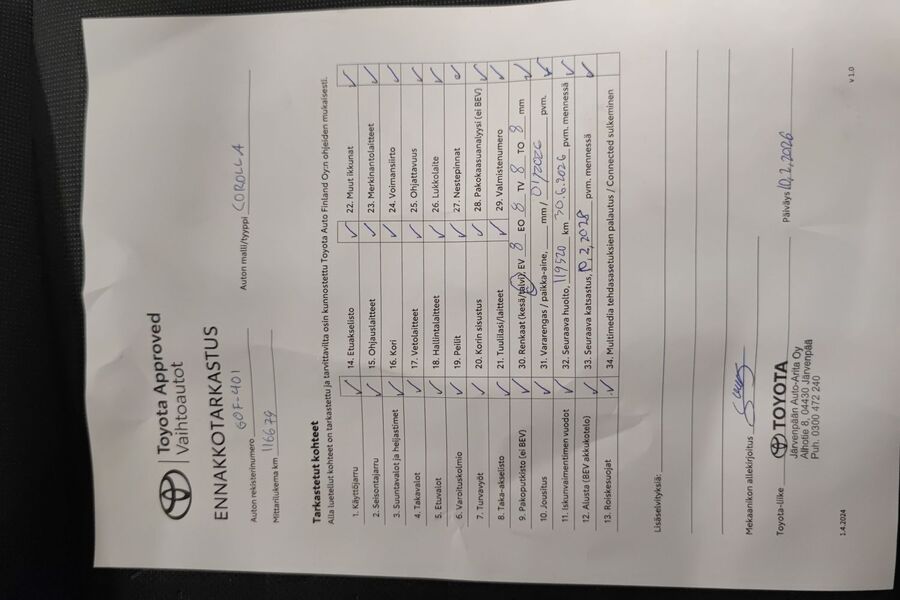 Toyota Approved
Vaihtoautot
ENNAKKOTARKASTUS
Auton rekisterinumero GOF-401 Auton malli/tyyppi COROLLA
Mittarilukema km 116679
Tarkastetut kohteet
Alla luetellut kohteet on tarkastettu ja tarvittavilta osin kunnostettu Toyota Auto Finland Oy:n ohjeiden mukaisesti.
1. Käyttöjarru ✓ 14. Etuakselisto ✓ 22. Muut ikkunat ✓
2. Seisontajarru ✓ 15. Ohjauslaitteet ✓ 23. Merkinantolaitteet ✓
3. Suuntavalot ja heijastimet ✓ 16. Kori ✓ 24. Voimansiirto ✓
4. Takavalot ✓ 17. Vetolaitteet ✓ 25. Ohjattavuus ✓
5. Etuvalot ✓ 18. Hallintalaitteet ✓ 26. Lukkolaite ✓
6. Varoituskolmio ✓ 19. Peilit ✓ 27. Nestepinnat ✓
7. Turvavyöt ✓ 20. Korin sisustus ✓ 28. Pakokaasuanalyysi (ei BEV) ✓
8. Taka-akselisto ✓ 21. Tuulilasi/laitteet ✓ 29. Valmistenumero ✓
9. Pakoputkisto (ei BEV) ✓ 30. Renkaat (kesä/talvi), EV 8 EO 8 TV 8 TO 8 mm ✓
10. Jousitus ✓ 31. Vararengas / paikka-aine, mm / 01/2026 pvm. ✓
11. Iskunvaimentimen vuodot ✓ 32. Seuraava huolto, 119520 km 30.6.2026 pvm. mennessä ✓
12. Alusta (BEV akkukotelo) ✓ 33. Seuraava katsastus, 10.2.2028 pvm. mennessä ✓
13. Roiskesuojat ✓ 34. Multimedia tehdasasetuksien palautus / Connected sulkeminen
Lisäselvityksiä:
Mekaanikon allekirjoitus
Toyota-liike TOYOTA Päiväys 10.2.2026
Järvenpään Auto-Arita Oy
Alhotie 8, 04430 Järvenpää
Puh. 0300 472 240
1.4.2024 v 1.0